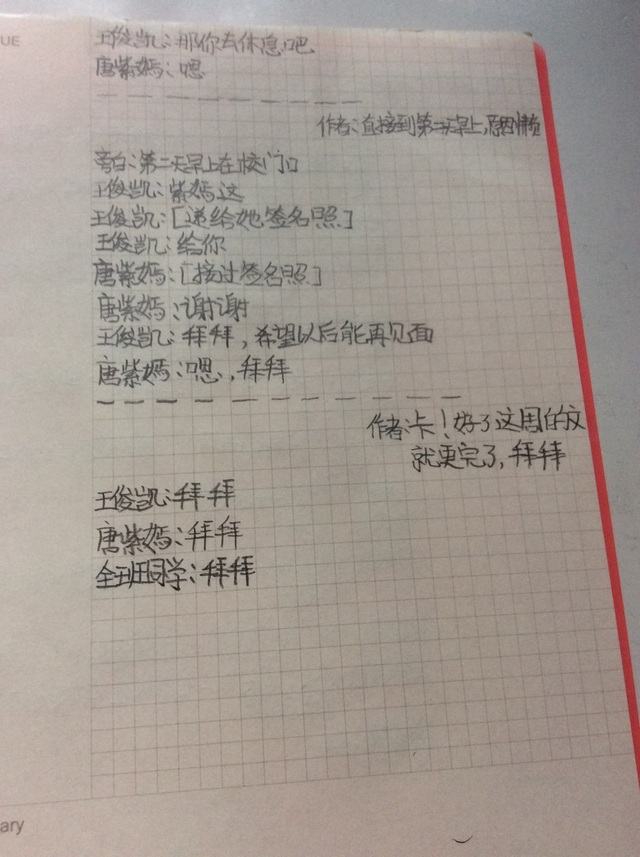 UE
王俊凯:那你去休息吧
唐紫嫣:嗯
作者:直接到第二天早上,原因懒
旁白:第二天早上在校门口
王俊凯:紫嫣这
王俊凯:[递给她签名照]
王俊凯:给你
唐紫嫣:[接过签名照]
唐紫嫣:谢谢
王俊凯:拜拜,希望以后能再见面
唐紫嫣:嗯,拜拜
作者:卡!好了这周的文
就更完了,拜拜
王俊凯:拜拜
唐紫嫣:拜拜
全班同学:拜拜
ary